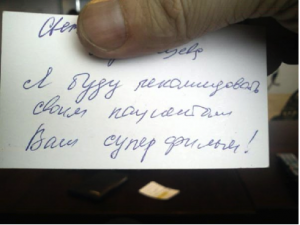 Я буду рекомендовать
своим пациентам
Ваш супер фильм!